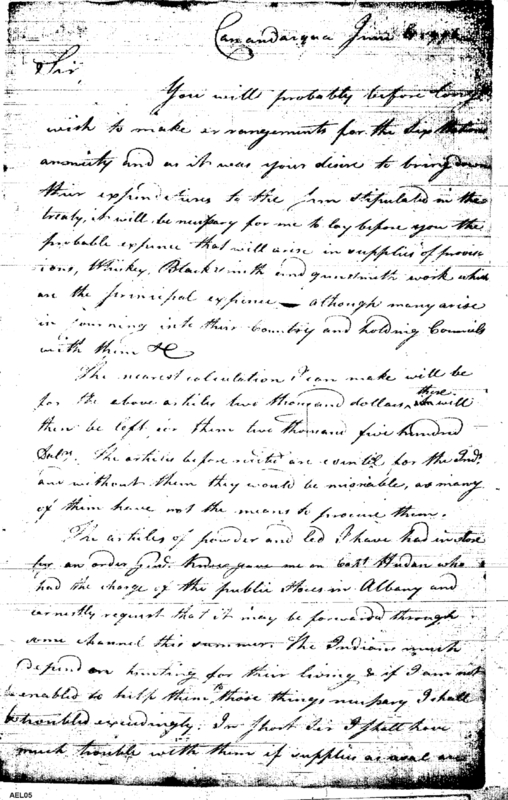 Canandaigua June
Sir,
You will probably before long
wish to make arrangements for the Six Nations
annuity and as it was your desire to bring down
their expenditures to the sum stipulated in the
treaty, it will be necessary for me to lay before you the
probable expence that will arise in supplies of provis
ions, Whiskey, Blacksmith and gunsmith work which
are the principal expence — although many arise
in journing into their Country and holding Councils
with them &c
The nearest calculation I can make will be
for the above articles two thousand dollars, there will
then be left for them two thousand five hundred
Dolrs. The articles before are for the Inds.
and without them they would be miserable, as many
of them have not the means to procure them.
The articles of powder and led I have had in store
an order Genl. Knox gave me on Capt. Hudan who
had the charge of the public Stores in Albany and
earnestly request that it may be forwarded through
some channel this summer. The Indians much
depend on hunting for their living & if I am not
enabled to help them to those things necessary I shall
be troubled exceedingly. In short Sir I shall have
much trouble with them if supplies as usual are
AEL05